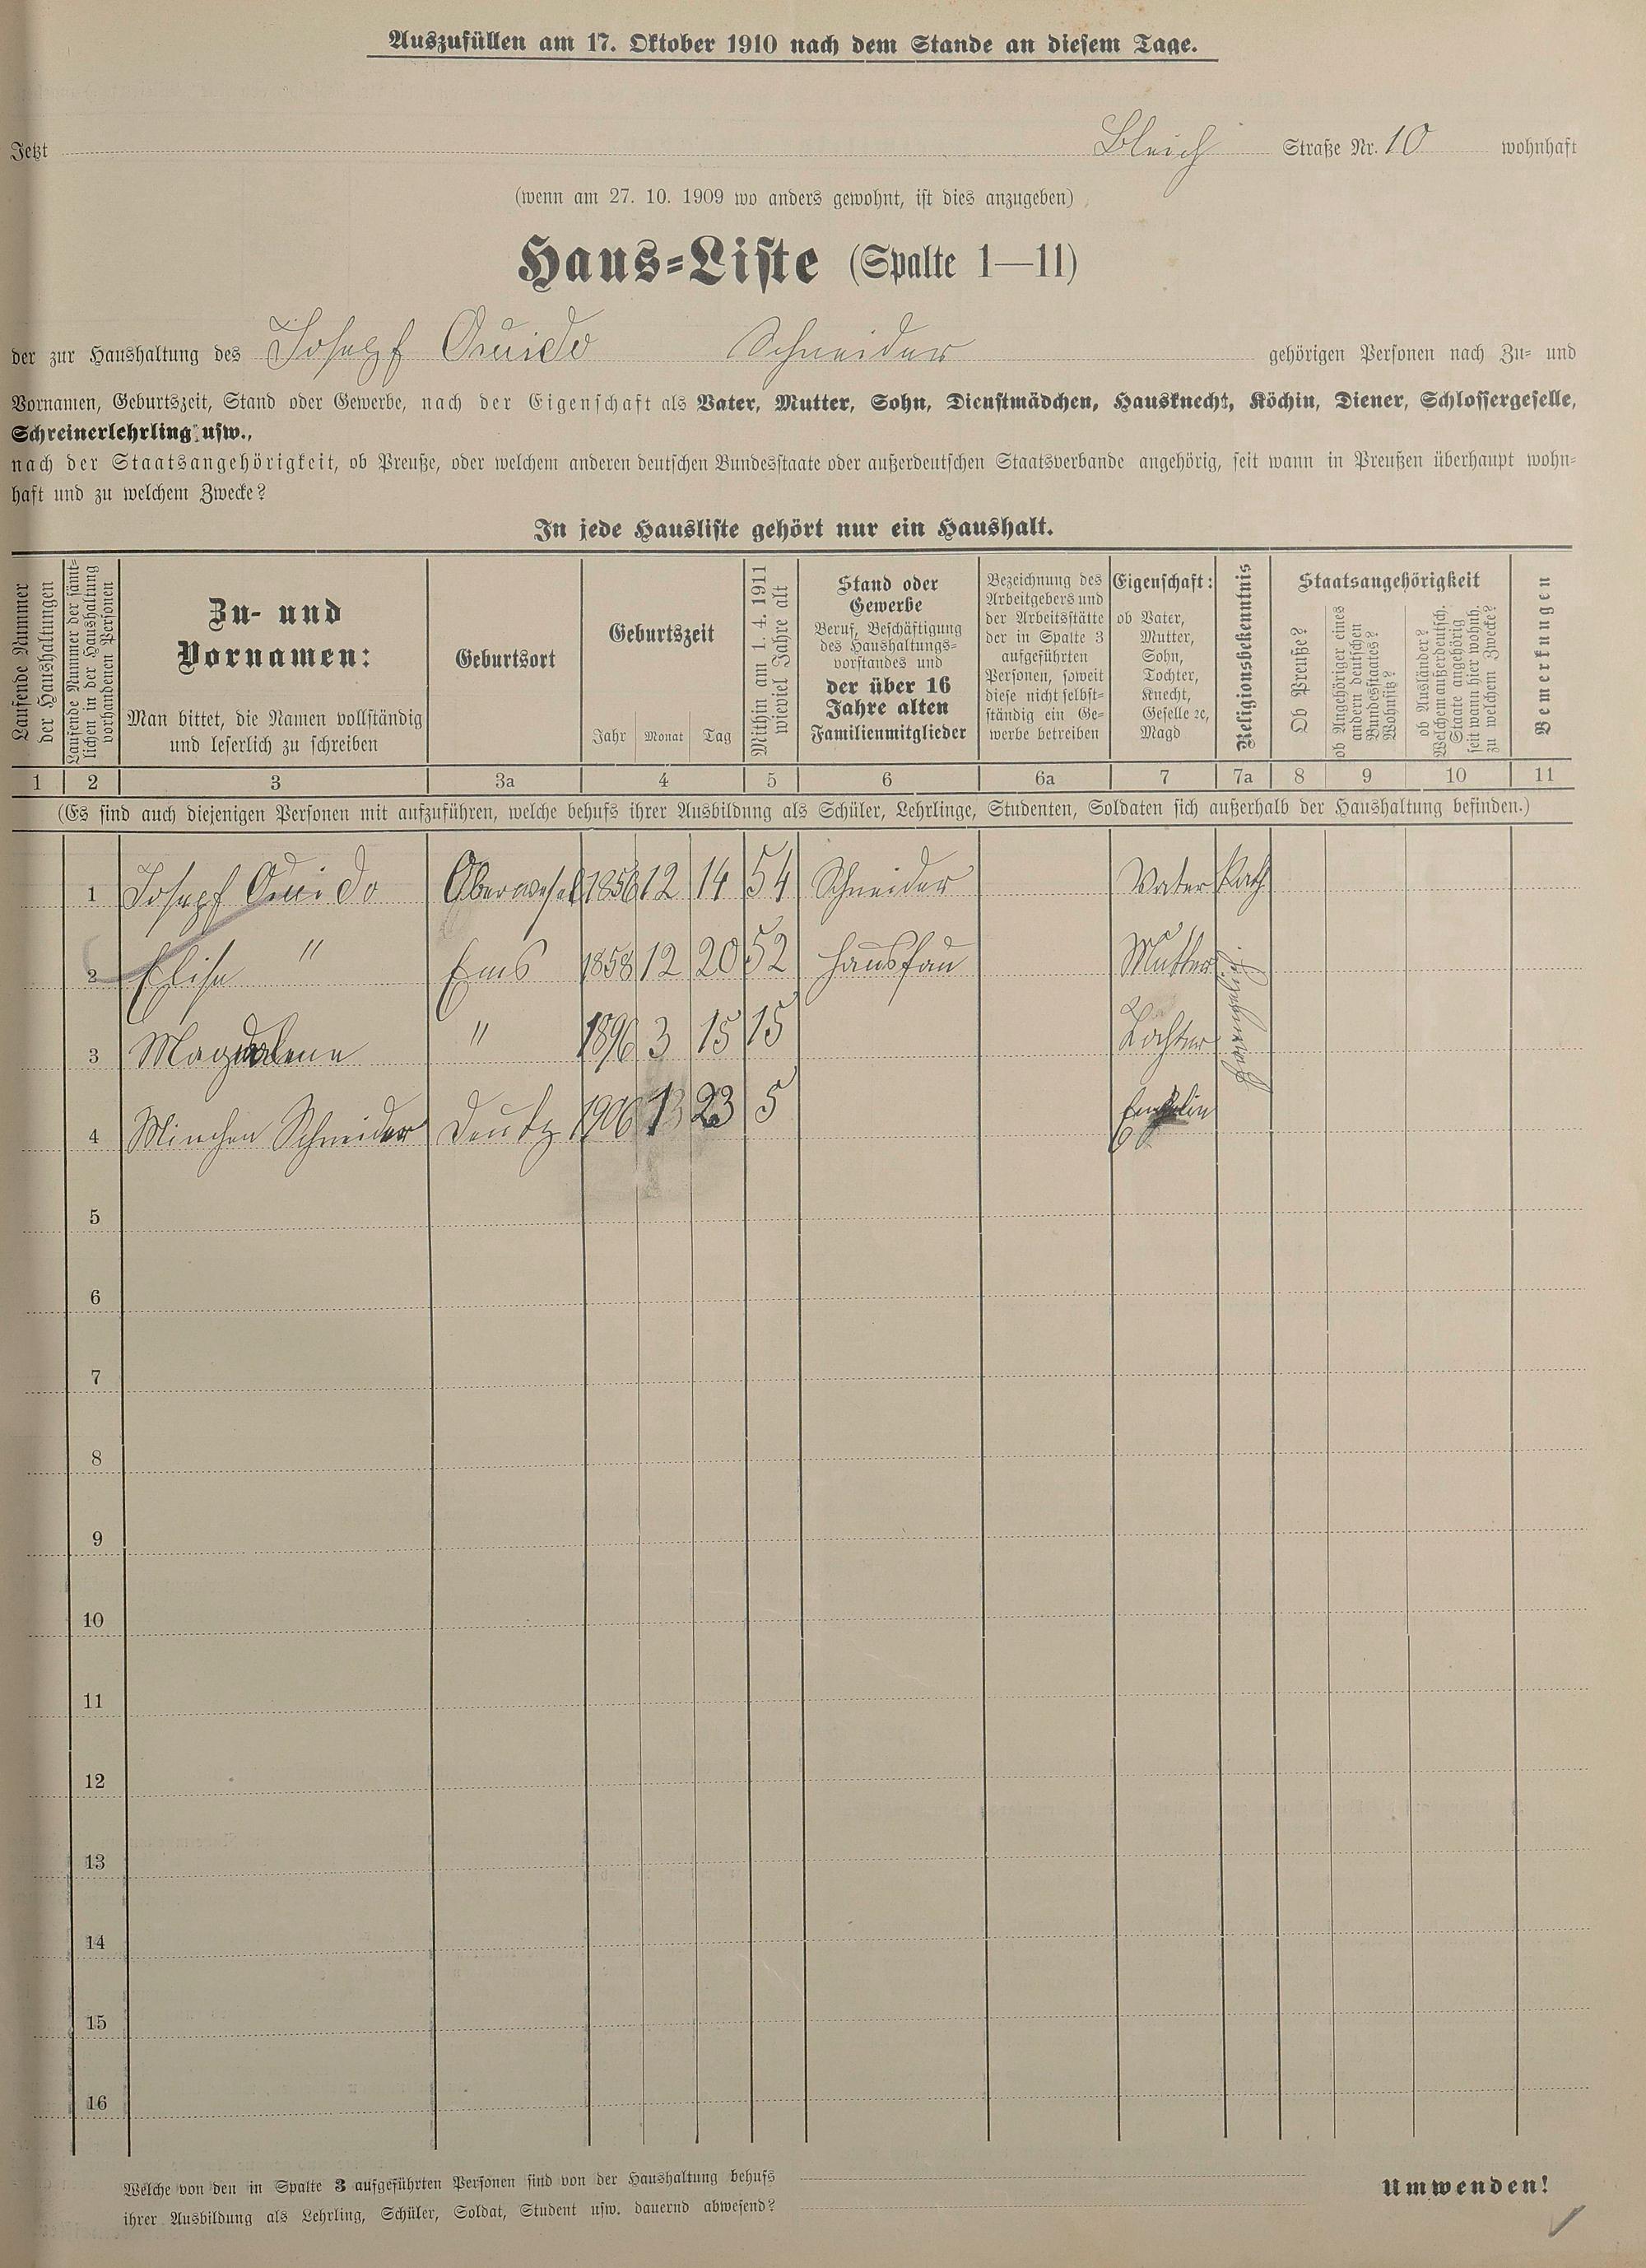 Auszufüllen am 17. Oktober 1910 nach dem Stande an diesem Tage.
Jetzt Bleich Straße Nr. 10 wohnhaft
(wenn am 27. 10. 1909 wo anders gewohnt, ist dies anzugeben)
Haus-Liste (Spalte 1—11)
der zur Haushaltung des Josepf Ouido Schneider gehörigen Personen nach Zu- und
Vornamen, Geburtszeit, Stand oder Gewerbe, nach der Eigenschaft als Vater, Mutter, Sohn, Dienstmädchen, Hausknecht, Köchin, Diener, Schlossergeselle,
Schreinerlehrling usw.,
nach der Staatsangehörigkeit, ob Preuße, oder welchem anderen deutschen Bundesstaate oder außerdeutschen Staatsverbande angehörig, seit wann in Preußen überhaupt wohn-
haft und zu welchem Zwecke?
In jede Hausliste gehört nur ein Haushalt.
Laufende Nummer
der Haushaltungen
Laufende Nummer der sämt-
lichen in der Haushaltung
vorhandenen Personen
Zu- und
Vornamen:
Man bittet, die Namen vollständig
und leserlich zu schreiben
Geburtsort
Geburtszeit
Jahr Monat Tag
Mithin am 1. 4. 1911
wieviel Jahre alt
Stand oder
Gewerbe
Beruf, Beschäftigung
des Haushaltungs-
vorstandes und
der über 16
Jahre alten
Familienmitglieder
Bezeichnung des
Arbeitgebers und
der Arbeitsstätte
der in Spalte 3
aufgeführten
Personen, soweit
diese nicht selbst-
ständig ein Ge-
werbe betreiben
Eigenschaft:
ob Vater,
Mutter,
Sohn,
Tochter,
Knecht,
Geselle ꝛc,
Magd
Religionsbekenntnis
Staatsangehörigkeit
Ob Preuße?
ob Angehöriger eines
andern deutschen
Bundesstaates?
Wohnsitz?
ob Ausländer?
Welchem außerdeutsch.
Staate angehörig
seit wann hier wohnh.
zu welchem Zwecke?
Bemerkungen
1 2 3 3a 4 5 6 6a 7 7a 8 9 10 11
(Es sind auch diejenigen Personen mit aufzuführen, welche behufs ihrer Ausbildung als Schüler, Lehrlinge, Studenten, Soldaten sich außerhalb der Haushaltung befinden.)
1 Josepf Ouido Oberwesel 1856 12 14 54 Schneider Vater Kath
2 Elise " Ems 1858 12 20 52 Hausfau Mutter
3 Magdalena " 1896 3 15 15 Tochter
4 Minchen Schneider Deutz 1906 1 23 5 Enkelin
5
6
7
8
9
10
11
12
13
14
15
16
Welche von den in Spalte 3 aufgeführten Personen sind von der Haushaltung behufs
ihrer Ausbildung als Lehrling, Schüler, Soldat, Student usw. dauernd abwesend?
Umwenden!